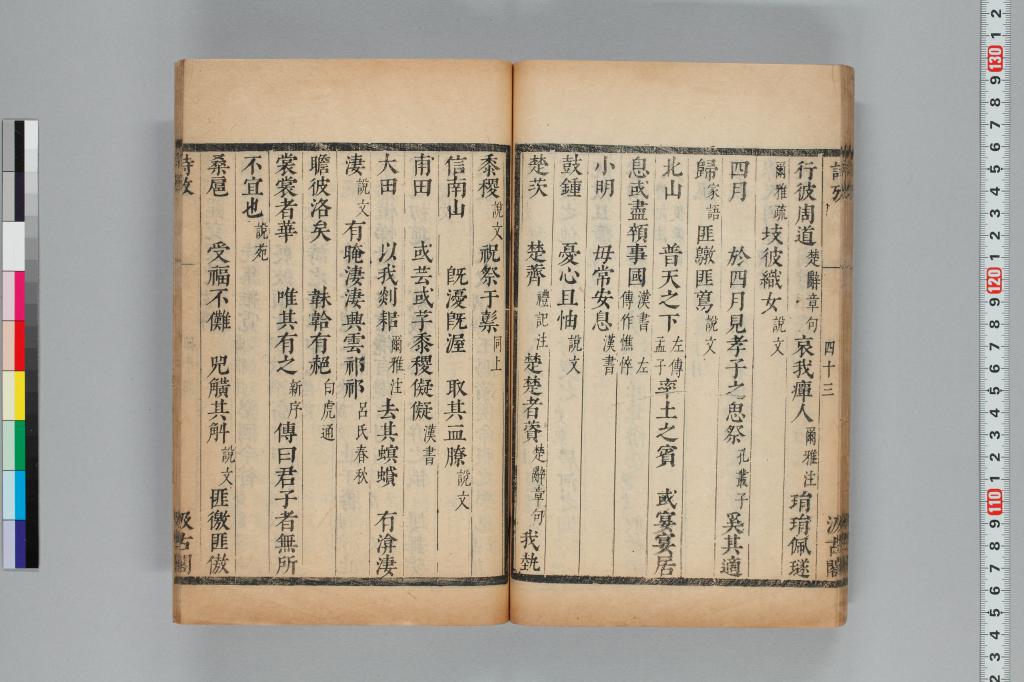 詩攷 四十三 汲古閣
行彼周道楚辭章句哀我癉人爾雅注琄琄佩璲
爾雅疏歧彼織女說文
四月 於四月見孝子之思祭孔叢子奚其適
歸家語匪鷻匪鳶說文
北山 普天之下左傳孟子率土之賓 或宴宴居
息或盡顇事國漢書 左傳作憔悴
小明 毋常安息漢書
鼓鍾 憂心且怞說文
楚茨 楚薺禮記注 楚楚者薋楚辭章句我埶
黍稷說文祝祭于鬃同上
信南山 旣瀀旣渥 取其血膫說文
甫田 或芸或芓黍稷儗儗漢書
大田 以我剡耜爾雅注去其螟蟘 有渰淒
淒說文有晻淒淒興雲祁祁呂氏春秋
瞻彼洛矣 韎韐有赩白虎通
裳裳者華 唯其有之新序傳曰君子者無所
不宜也說苑
桑扈 受福不儺 兕觵其觓說文匪徼匪傲
詩攷 汲古閣